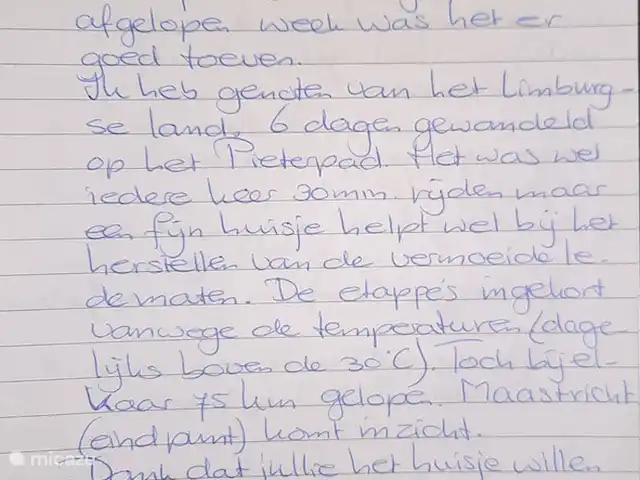 afgelopen week was het er
goed toeven.
Ik heb genoten van het Limburg-
se land. 6 dagen gewandeld
op het Pieterpad. Het was wel
iedere keer 30 min. rijden maar
een fijn huisje helpt wel bij het
herstellen van de vermoeide le-
dematen. De etappe's ingekort
vanwege de temperaturen (dage
lijks boven de 30°C). Toch bij el-
kaar 75 km gelopen. Maastricht
(eindpunt) komt in zicht.
Dank dat jullie het huisje willen
micazu